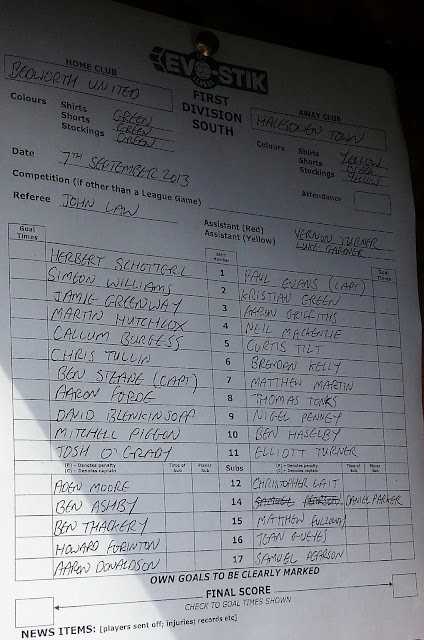 EVO-STIK
LEAGUE
FIRST
DIVISION
SOUTH
HOME CLUB
BEDWORTH UNITED
Colours Shirts GREEN
Shorts GREEN
Stockings GREEN
AWAY CLUB
HALESOWEN TOWN
Colours Shirts YELLOW
Shorts
Stockings YELLOW
Date 7TH SEPTEMBER 2013
Attendance
Competition (if other than a League Game)
Referee JOHN LAW
Assistant (Red) VERNON TURNER
Assistant (Yellow) LUKE GARDNER
Goal Times Shirt Number Goal Times
HERBERT SCHOTTERL 1 PAUL EVANS (CAPT)
SIMEON WILLIAMS 2 KRISTIAN GREEN
JAMIE GREENWAY 3 AARON GRIFFITHS
MARTIN HUTCHCOX 4 NEIL MACKENZIE
CALLUM BURGESS 5 CURTIS TILT
CHRIS TULLIN 6 BRENDAN KELLY
BEN STEANE (CAPT) 7 MATTHEW MARTIN
AARON FORDE 8 THOMAS TONKS
DAVID BLENKINSOPP 9 NIGEL PENNEY
MITCHELL PIGGON 10 BEN HASELBY
JOSH O'GRADY 11 ELLIOTT TURNER
(P) - Denotes penalty Time of Sub Player Sub Subs (P) - Denotes penalty Time of Sub Player Sub
(C) - Denotes captain (C) - Denotes captain
ADEN MOORE 12 CHRISTOPHER LAIT
BEN ASHBY 14 SAMUEL PEARSON DANIEL PARKER
BEN THACKERY 15 MATTHEW
HOWARD FORINTON 16 JEAN GUEYES
AARON DONALDSON 17 SAMUEL PEARSON
OWN GOALS TO BE CLEARLY MARKED
FINAL SCORE
CHECK TO GOAL TIMES SHOWN
NEWS ITEMS: [players sent off; injuries; records etc]